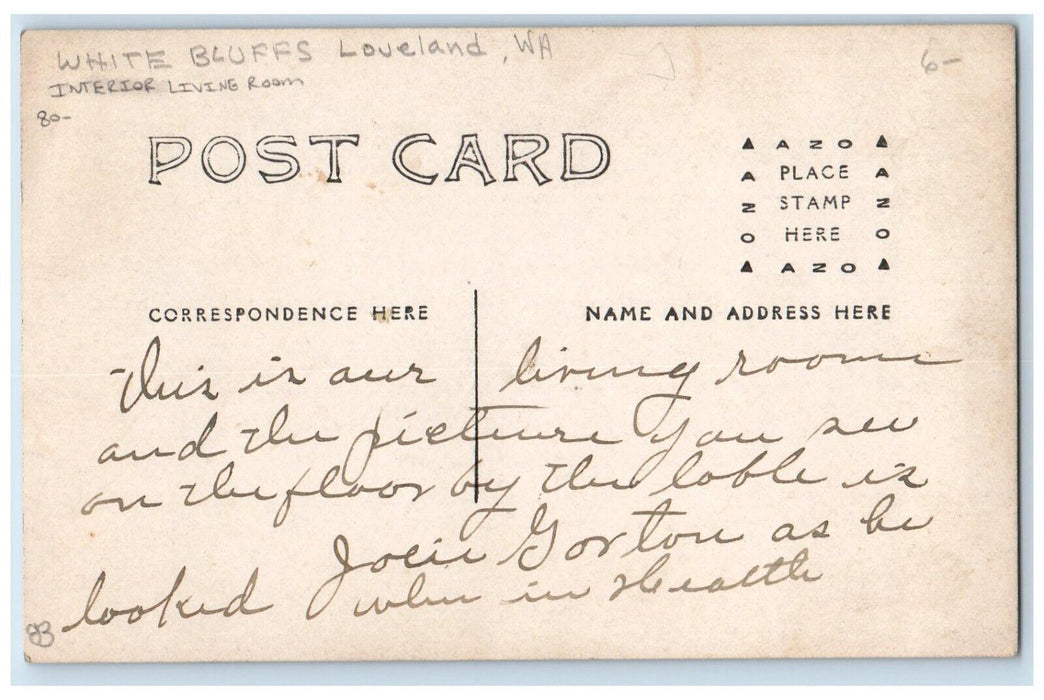 WHITE BLUFFS Loveland, WA
6-
INTERIOR LIVING ROOM
80-
POST CARD
▲ A Z O ▲
A PLACE A
Z STAMP Z
O HERE O
▲ A Z O ▲
CORRESPONDENCE HERE
NAME AND ADDRESS HERE
This is our living room
and the picture you see
on the floor by the table is
Gorton as he
looked when in Health
83